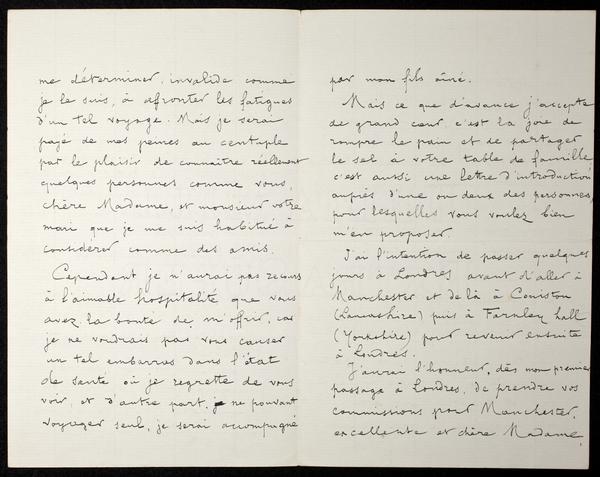 me déterminer, invalide comme
je le suis, à affronter les fatigues
d'un tel voyage. Mais je serai
payé de mes peines au centuple
par le plaisir de connaître réellement
quelques personnes comme vous,
chère Madame, et monsieur votre
mari que je me suis habitué à
considérer comme des amis.
Cependant je n'aurai pas recours
à l'aimable hospitalité que vous
avez la bonté de m'offrir, car
je ne voudrais pas vous causer
un tel embarras dans l'état
de santé où je regrette de vous
voir, et d'autre part, je ne pouvant
voyager seul, je serai accompagné
par mon fils aîné.
Mais ce que d'avance j'accepte
de grand cœur c'est la joie de
rompre le pain et de partager
le sel à votre table de famille
c'est aussi une lettre d'introduction
auprès d'une ou deux des personnes,
pour lesquelles vous voulez bien
m'en proposer.
J'ai l'intention de passer quelques
jours à Londres avant d'aller à
Manchester et de là à Coniston
(Lancashire) puis à Farnley Hall
(Yorkshire) pour revenir ensuite
à Londres.
J'aurai l'honneur, dès mon premier
passage à Londres, de prendre vos
commissions pour Manchester,
excellente et chère Madame,